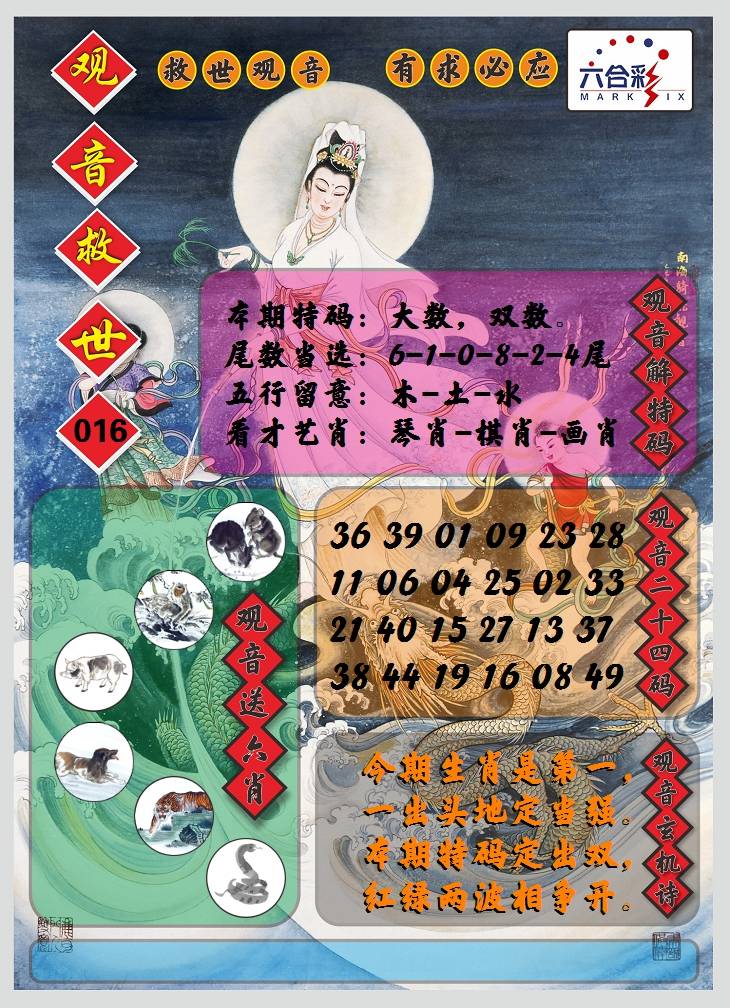 观音救世
016
救世观音 有求必应
六合彩
MARK SIX
南海
本期特码：大数，双数。
尾数当选：6-1-0-8-2-4尾
五行留意：木-土-水
看才艺肖：琴肖-棋肖-画肖
观音解特码
36 39 01 09 23 28
11 06 04 25 02 33
21 40 15 27 13 37
38 44 19 16 08 49
观音二十四码
观音送六肖
今期生肖是第一，
一出头地定当强。
本期特码定出双，
红绿两波相争开。
观音玄机诗